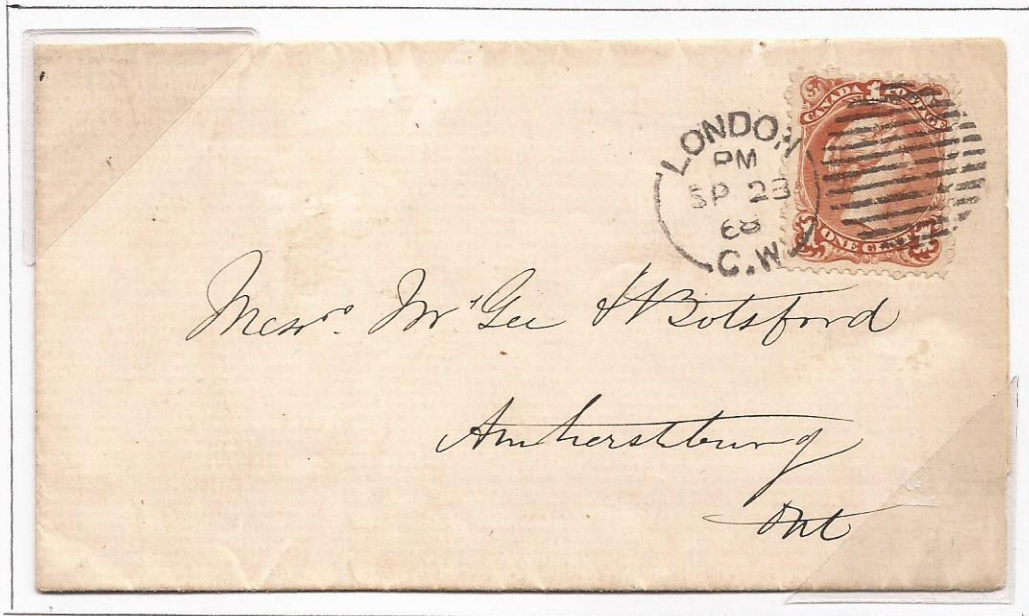 LONDON
PM
SP 23
68
C.W
CANADA POSTAGE
1
ONE CENT
Messrs. McGee & Botsford
Amherstburg
Ont